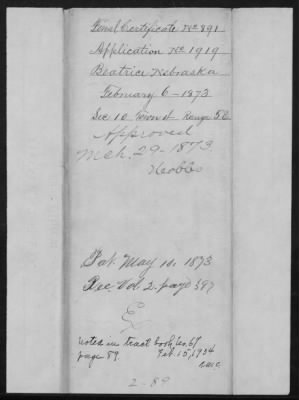 Final Certificate No 891
Application No 1919
Beatrice Nebraska
February 6 - 1873
Sec 10 Town 4 Range 5E
Approved
Mch. 29 - 1873
Hobbs
Pat. May 10. 1873
Rec. Vol. 2. page 397
Ex
Noted in tract book, 67
page 89. Feb. 15, 1934
2 - 89